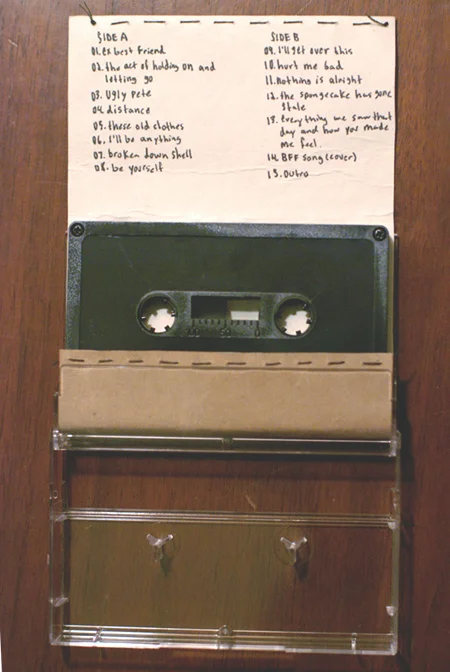 SIDE A
01. ex best friend
02. the act of holding on and
letting go
03. Ugly Pete
04. distance
05. these old clothes
06. I'll be anything
07. broken down shell
08. be yourself
SIDE B
09. I'll get over this
10. hurt me bad
11. nothing is alright
12. the spongecake has gone
stale
13. everything we saw that
day and how you made
me feel.
14. BFF song (cover)
15. outro